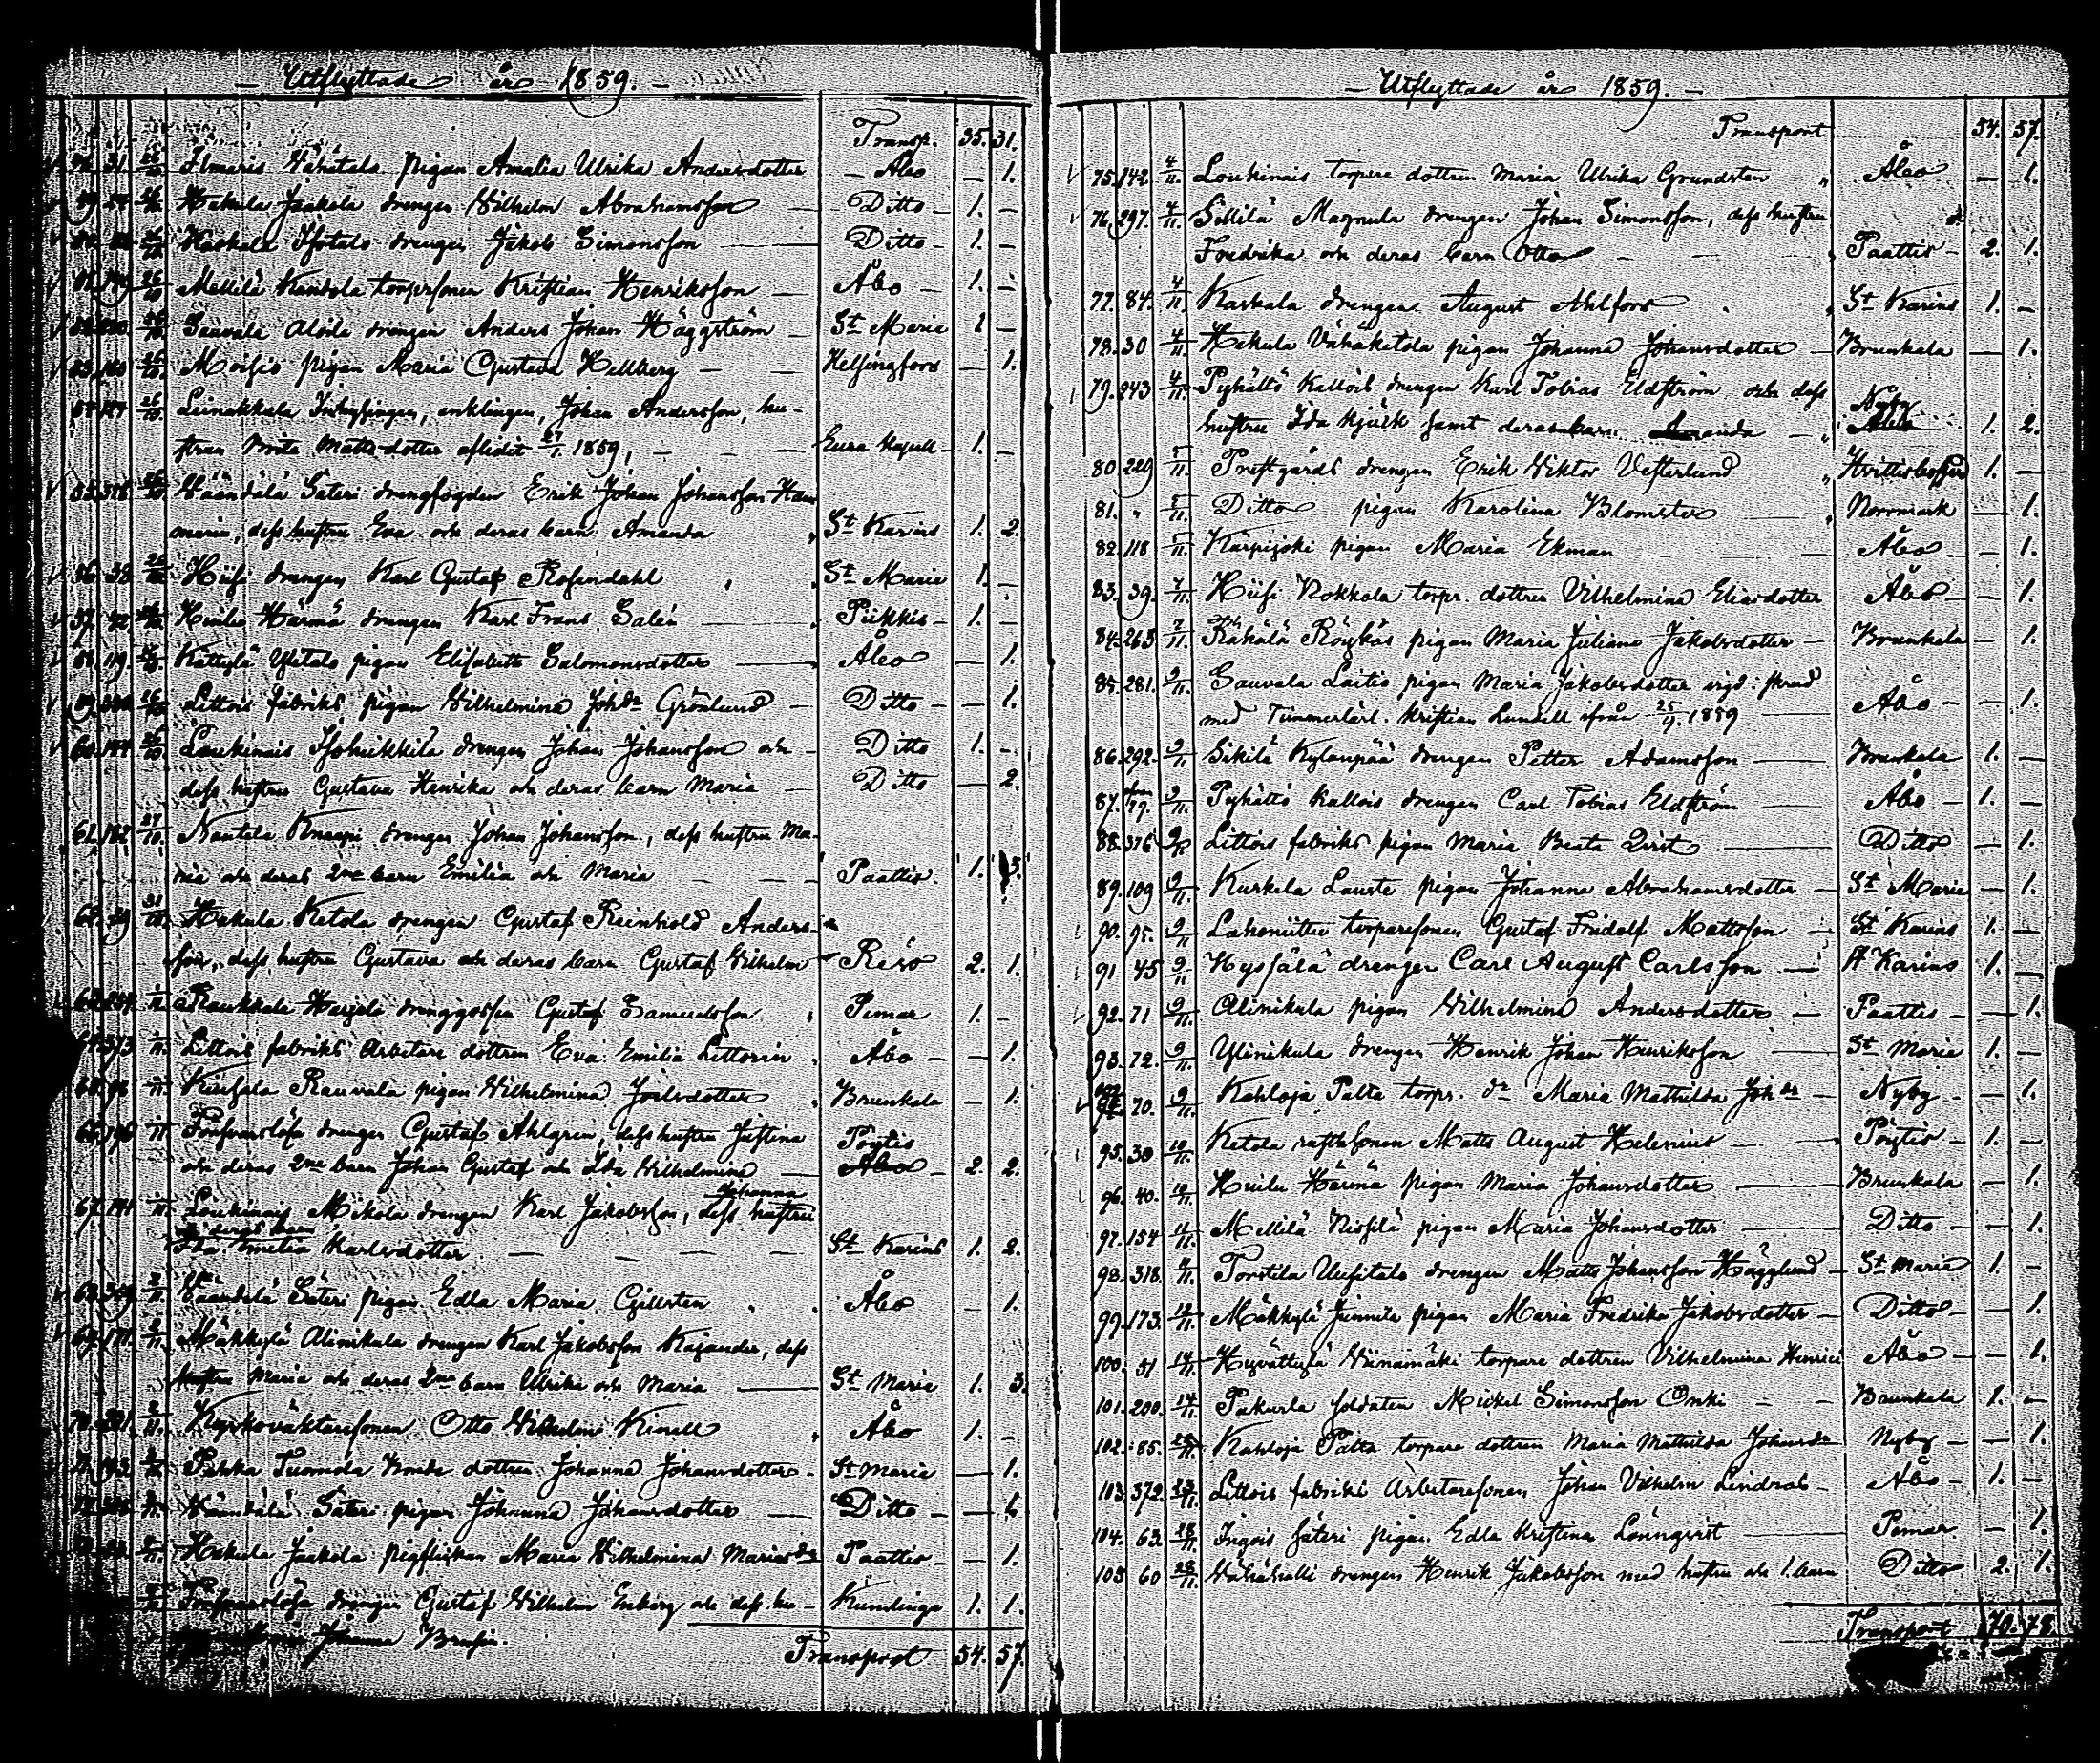 — Utflyttade år 1859. —
Transp. 35. 31.
31. 26/10 Ilmaris Vähätalo pigan Amalia Ulrika Andersdotter — Åbo — 1.
26/10 Hakula Jaakola drengen Wilhelm Abrahamsson — Ditto — 1. —
26/10 Kaskala Isotalo drengen Jakob Simonsson — Ditto — 1. —
26/10 Mellilä Kandola torparsonen Kristian Henriksson — Åbo — 1. —
26/10 Sauvala Aloila drengen Anders Johan Häggström — St Marie 1 —
53. 160 26/10 Moisio pigan Maria Gustava Hellberg — — Helsingfors — 1.
26/10 Leinakkala Inhysingen, enklingen, Johan Andersson, hu-
strun Brita Mattsdotter aflidit 27/1 1859, — — Eura Kapell 1. —
55. 26/10 Väändälä Säteri drengfogden Erik Johan Johansson
dess hustru Eva och deras barn Amanda St Karins 1. 2.
56. 38. 26/10 Hiisi drengen Karl Gustaf Rosendahl St Marie 1. —
57. 42. 26/10 Huilu Härmä drengen Karl Frans Salén — Piikkis — 1. —
58. 119. 26/10 Kättylä Ylitalo pigan Elisabeth Salomonsdotter — Åbo — 1.
26/10 Littois fabriks pigan Wilhelmina Johdr Grönlund — Ditto — — 1.
60. 144. 26/10 Loukinais Isoheikkilä drengen Johan Johansson och — Ditto 1. —
dess hustru Gustava Henrika och deras barn Maria — Ditto — 2.
61. 182. 27/10 Nautela Knaapi drengen Johan Johansson, dess hustru Ma-
ria och deras 2ne barn Emilia och Maria — — Paattis. 1. 3.
62. 29 31/10 Hakula Ketola drengen Gustaf Reinhold Anders-
son, dess hustru Gustava och deras barn Gustaf Wilhelm — Reso 2. 1.
Raukkala Harjela drenggossen Gustaf Samuelsson Pemar 1. —
373 Littois fabriks Arbetare dottren Eva Emilia Littorin Åbo — — 1.
Rauvala pigan Wilhelmina Joelsdotter Brunkala — 1.
66. 196 Försvarslösa drengen Gustaf Ahlgren, dess hustru Justina Pöytis
och deras 2ne barn Johan Gustaf och Ida Wilhelmina — Åbo — 2. 2.
Johanna
67. 141 Loukinais Mikola drengen Karl Jakobsson, dess hustru
deras barn
Ida Emilia Karlsdotter. — — — St Karins 1. 2.
68. 309 2/11 Väändälä Säteri pigan Edla Maria Gillsten Åbo — 1.
69. 171. 2/11. Mäkkylä Alinikula drengen Karl Jakobsson Kajander, dess
hustru Maria och deras 2ne barn Ulrika och Maria — St Marie 1. 3.
70. 2/11. Kyrkoväktaresonen Otto Wilhelm Kinell Åbo 1. —
Pahka Tuomola bonde dottren Johanna Johansdotter — St Maria — 1.
Väändälä Säteri pigan Johanna Johansdotter — Ditto — — 1.
Hakula Jaakola pigflickan Maria Wilhelmina Mariasdr Paattis — — 1.
Försvarslösa drengen Gustaf Wilhelm Enberg och dess hu- Kumlinge 1. 1.
Johanna
Transport 54. 57.
— Utflyttade år 1859. —
Transport 54. 57.
75. 142. 4/11. Loukinais torpare dottren Maria Ulrika Grundsten „ Åbo — 1.
76. 297. 4/11. Sillilä Magnula drengen Johan Simonsson, dess hustru
Fredrika och deras barn Otto — — Paattis — 2. 1.
77. 84. 4/11 Kaskala drengen August Ahlfors St Karins 1. —
78. 30 4/11. Hakula Vähäketola pigan Johanna Johansdotter — Brunkala — 1.
79. 243 4/11. Pyhältö Kallois drengen Karl Tobias Eldström och dess Nyby
hustru Ida Kjuck samt deras barn Amanda — „ 1. 2.
80. 229 5/11. Prestgårds drengen Erik Viktor Vesterlund „ Hvittisbofjerd 1. —
81. „ 5/11. Ditto pigan Karolina Blomster — „ Norrmark — 1.
82. 118 5/11. Karpijoki pigan Maria Ekman — Åbo — — 1.
83. 39. 7/11. Hiisi Nokkala torpr. dottren Vilhelmina Eliasdotter Åbo — — 1.
84. 263 7/11. Rähälä Röykäs pigan Maria Juliana Jakobsdotter — Brunkala — 1.
85. 281. 9/11. Sauvala Laitio pigan Maria Jakobsdotter vigd
med Timmerkarl. Kristian Lundell ifrån 25/9 1859 — Åbo — — 1.
86. 292. 9/11 Sikilä Kylänpää drengen Petter Adamsson — Brunkala 1. —
87. 79. 9/11. Pyhältö Kallois drengen Carl Tobias Eldström — Åbo — 1. —
88. 376 9/11 Littois fabriks pigan Maria Beata Qvist — Ditto — 1.
89. 109 9/11. Kurkela Lauste pigan Johanna Abrahamsdotter — St Marie — 1.
90. 95. 9/11 Lahoniittu torparesonen Gustaf Fridolf Mattsson — St Karins 1. —
91 45 9/11 Hyssälä drengen Carl August Carlsson — St Karins 1. —
92. 71 9/11. Alinikula pigan Wilhelmina Andersdotter — Paattis — — 1.
93. 72. 9/11. Ylinikula drengen Henrik Johan Henriksson — St Maria 1. —
70. 9/11. Kahloja Palta torpr. dr Maria Mathilda Johdr — Nyby — — 1.
95. 30 10/11. Ketola Matts August Helenius — Pöytis — 1. —
96. 40. 10/11 Huilu Härmä pigan Maria Johansdotter — Brunkala — 1.
97. 154 11/11. Mellilä Nissilä pigan Maria Johansdotter — Ditto — — 1.
98. 318. 11/11. Torstila Uusitalo drengen Matts Johansson Hägglund — St Maria 1. —
99. 173. 12/11. Mäkkylä Junnila pigan Maria Fredrika Jakobsdotter — Ditto — — 1.
100. 51 14/11 Hyvättylä Viinamäki torpare dottren Vilhelmina Henrici Åbo — — 1.
101. 200. 14/11. Pakurla soldaten Mickel Simonsson Onki — — Brunkala 1. —
102. 85. Kahloja Palta torpare dottren Maria Mathilda Johansdr Nyby — — 1.
103. 372. Littois fabriks Arbetaresonen Johan Vilhelm Lindroos — Åbo — 1. —
104. 63. 28/11. Ingois säteri pigan Edla Kristina Lönnqvist — Pemar — 1.
105 60 28/11. Vähähalli drengen Henrik Jakobsson med hustru och 1. barn Ditto 2. 1.
Transport 70. 78.